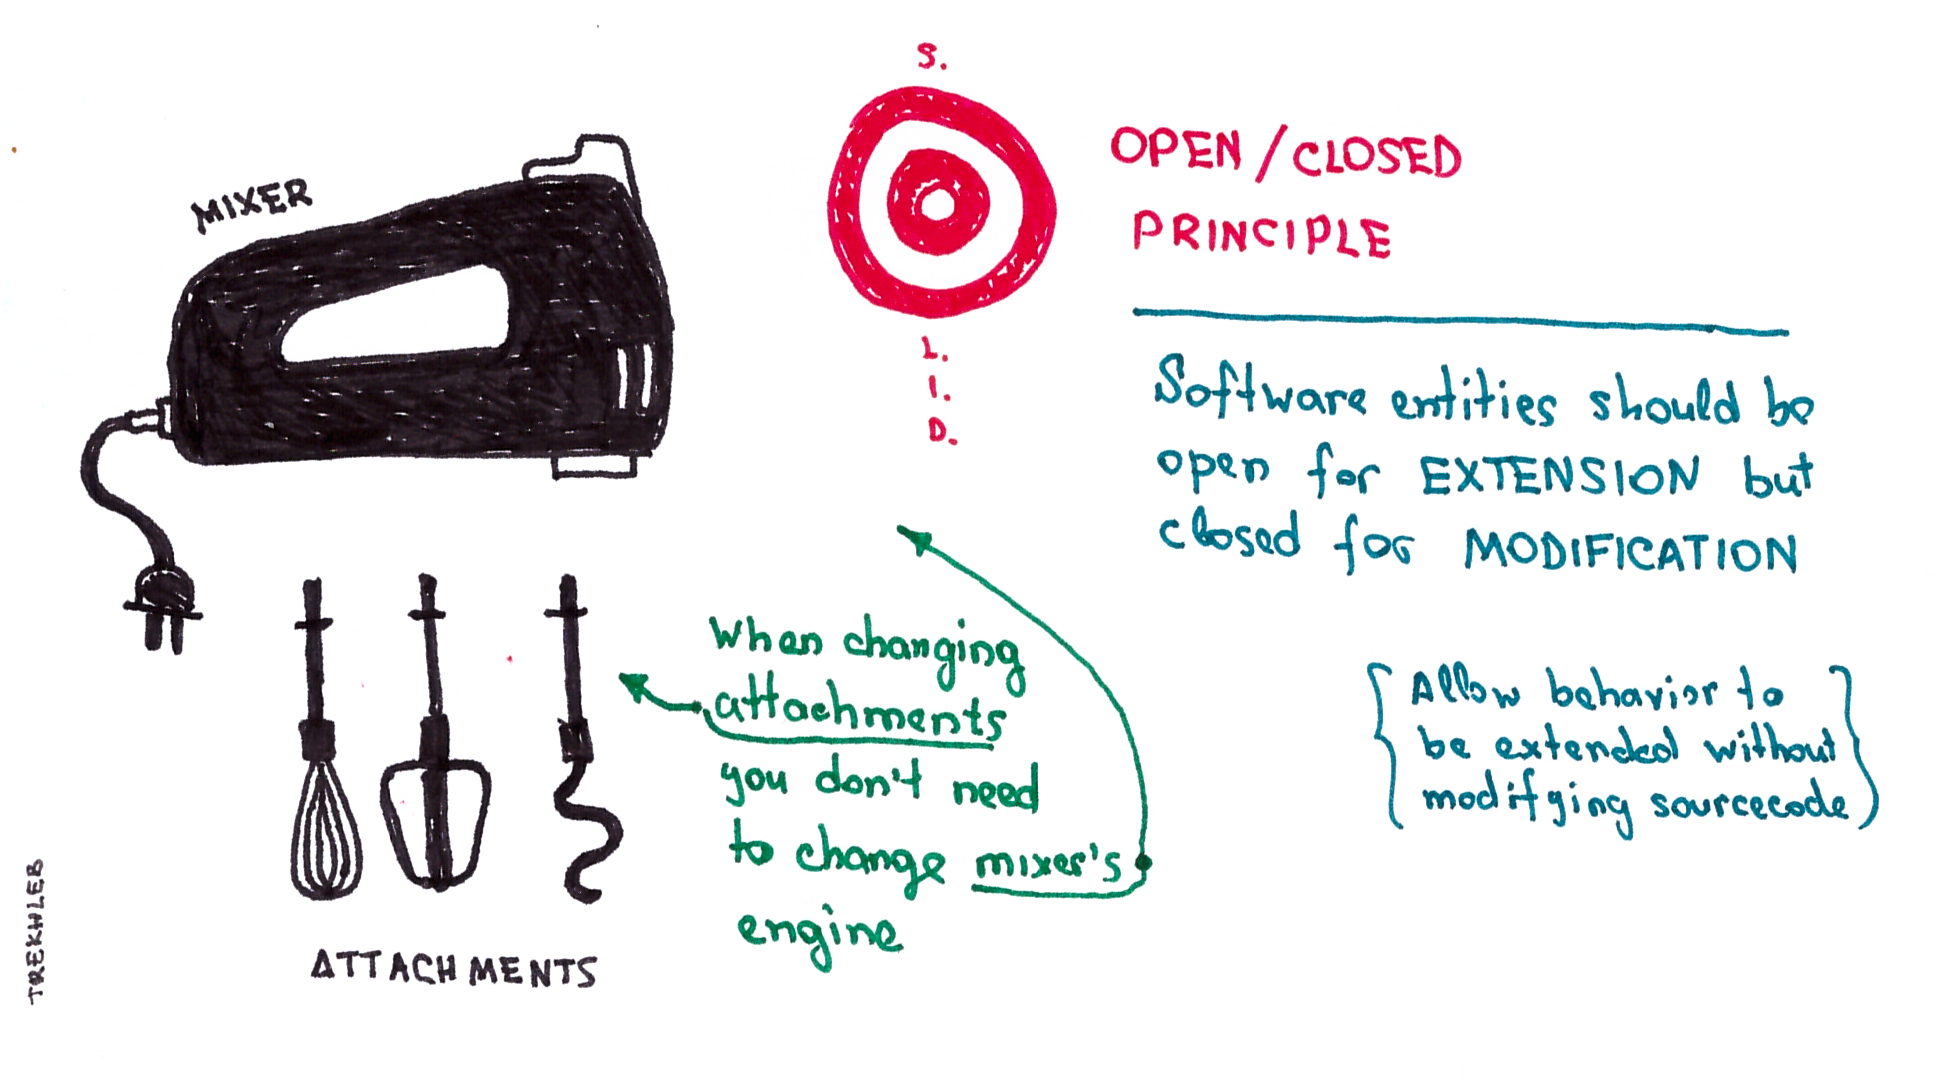 MIXER
S.
L.
I.
D.
OPEN/CLOSED
PRINCIPLE
Software entities should be
open for EXTENSION but
closed for MODIFICATION
Allow behavior to
be extended without
modifying sourcecode
When changing
attachments
you don't need
to change mixer's
engine
ATTACHMENTS
TREKHLEB